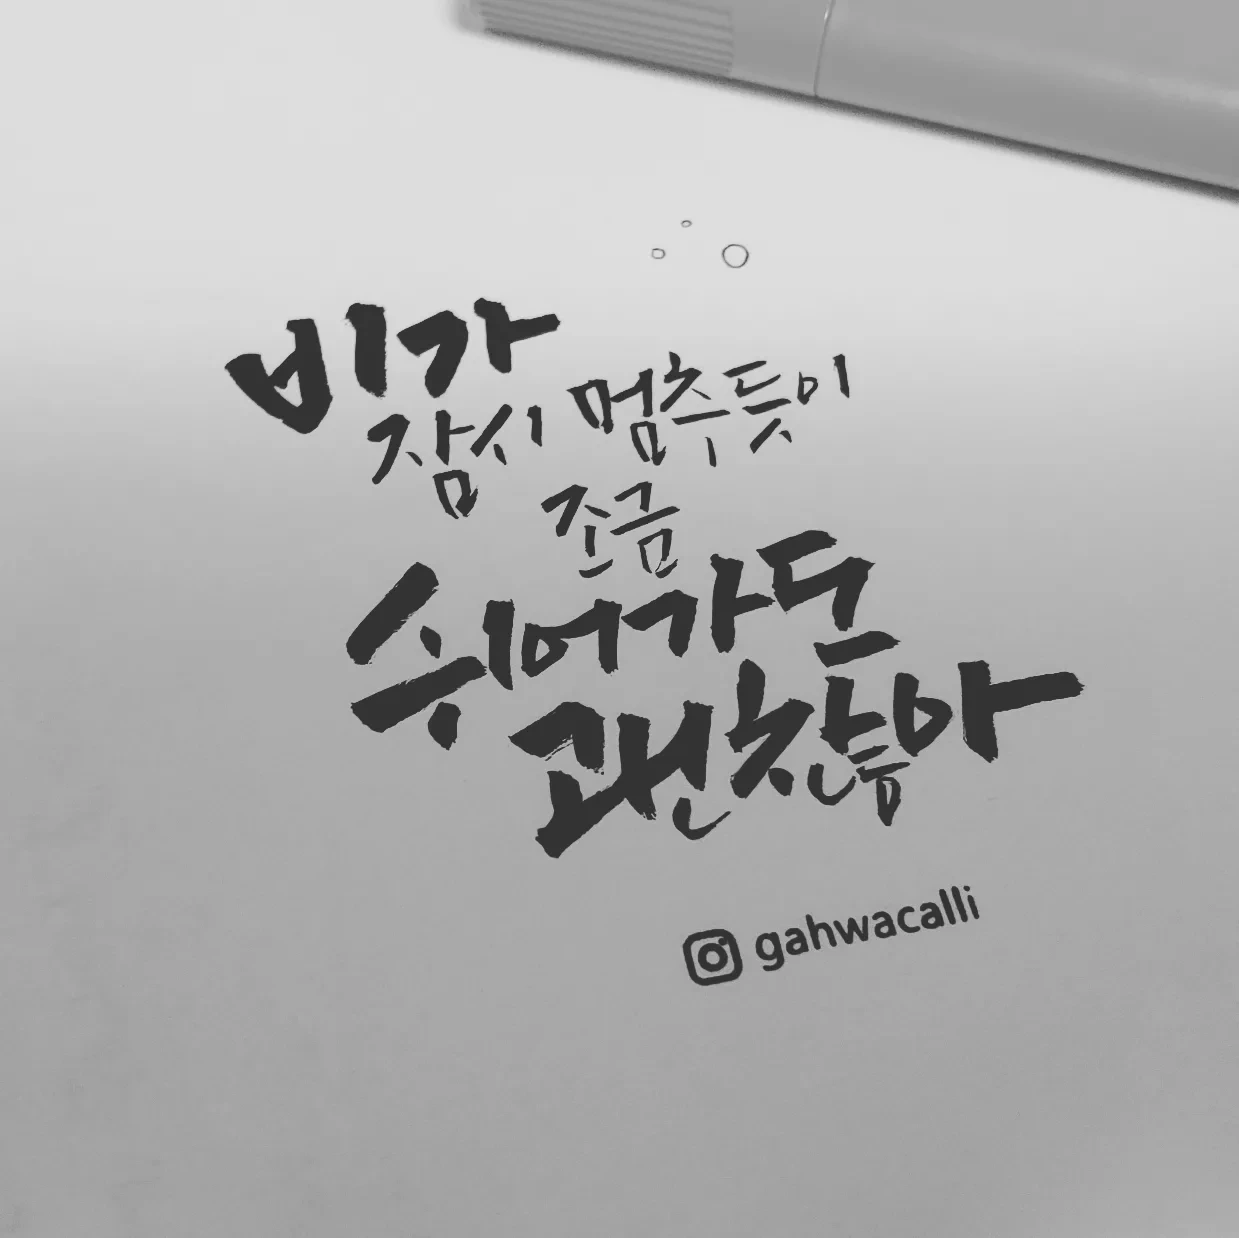 비가
잠시 멈추듯이
조금
쉬어가도
괜찮아
gahwacalli